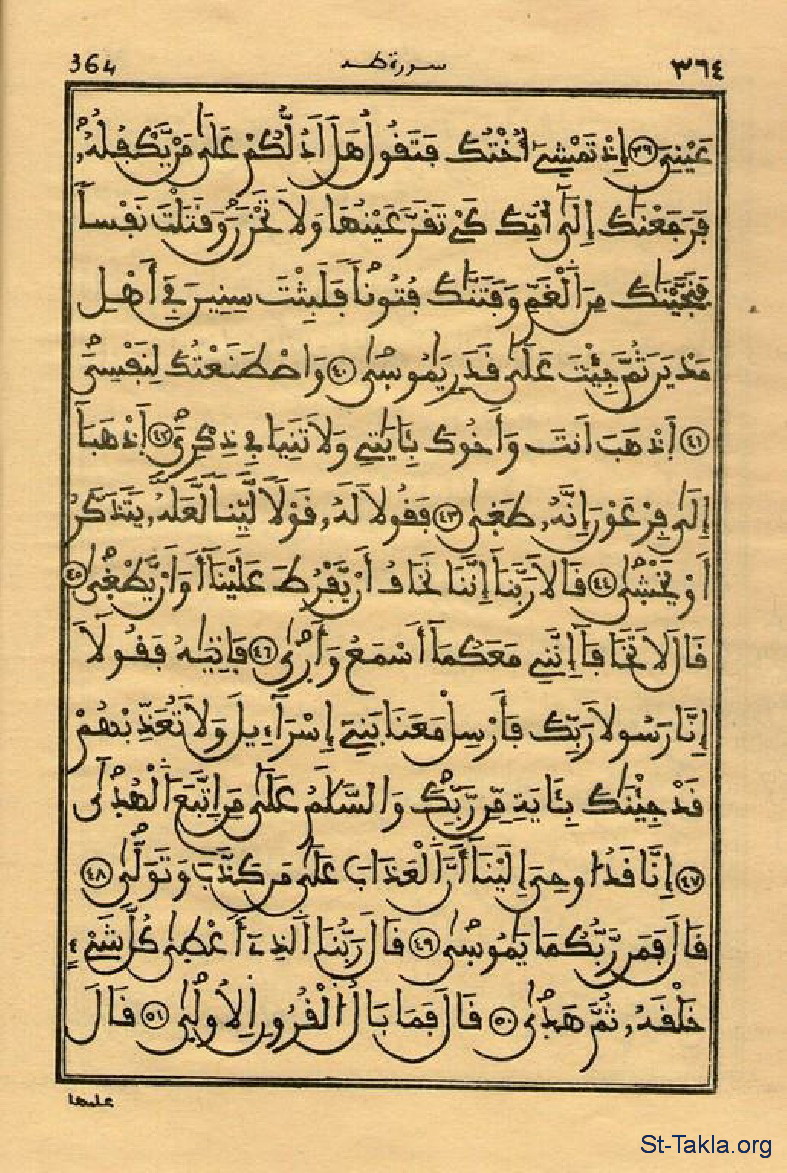 ٣٦٤ سورة طه 364
عَيْنِيَ ٣٩ إِذْ تَمْشِيَ أُخْتُكَ فَتَقُولُ هَلَ اَدُلُّكُمْ عَلَىٰ مَنْ يَّكْفُلُهُۥ
فَرَجَعْنَٰكَ إِلَىٰٓ أُمِّكَ كَيْ تَقَرَّ عَيْنُهَا وَلَا تَحْزَنَ وَقَتَلْتَ نَفْساً
فَنَجَّيْنَٰكَ مِنَ اَ۬لْغَمِّ وَفَتَنَّٰكَ فُتُوناً فَلَبِثْتَ سِنِينَ فِے أَهْلِ
مَدْيَنَ ثُمَّ جِئْتَ عَلَىٰ قَدَرٍ يَٰمُوسٰىۖ ٤٠ وَاصْطَنَعْتُكَ لِنَفْسِيَ
٤١ اَ۪ذْهَبَ اَنتَ وَأَخُوكَ بِـَٔايَٰتِے وَلَا تَنِيَا فِے ذِكْرِيَ ٤٢ اَ۪ذْهَبَآ
إِلَىٰ فِرْعَوْنَ إِنَّهُۥ طَغٰىۖ ٤٣ فَقُولَا لَهُۥ قَوْلاً لَّيِّناً لَّعَلَّهُۥ يَتَذَكَّرُ
أَوْ يَخْشٰىۖ ٤٤ قَالَا رَبَّنَآ إِنَّنَا نَخَافُ أَنْ يَّفْرُطَ عَلَيْنَآ أَوَ اَنْ يَّطْغٰىۖ ٤٥
قَالَ لَا تَخَافَآ إِنَّنِے مَعَكُمَآ أَسْمَعُ وَأَر۪ىٰۖ ٤٦ فَاتِيَٰهُ فَقُولَآ
إِنَّا رَسُولَا رَبِّكَ فَأَرْسِلْ مَعَنَا بَنِےٓ إِسْرَآءِيلَ وَلَا تُعَذِّبْهُمْ
قَدْ جِئْنَٰكَ بِـَٔايَةٍ مِّن رَّبِّكَ وَالسَّلَٰمُ عَلَىٰ مَنِ اِ۪تَّبَعَ اَ۬لْهُد۪ىٰٓ
٤٧ إِنَّا قَدُ ا۟وحِيَ إِلَيْنَآ أَنَّ اَ۬لْعَذَابَ عَلَىٰ مَن كَذَّبَ وَتَوَلّٰىۖ ٤٨
قَالَ فَمَن رَّبُّكُمَا يَٰمُوسٰىۖ ٤٩ قَالَ رَبُّنَا اَ۬لذِےٓ أَعْط۪ىٰ كُلَّ شَےْءٍ
خَلْقَهُۥ ثُمَّ هَد۪ىٰۖ ٥٠ قَالَ فَمَا بَالُ اُ۬لْقُرُونِ اِ۬لُاول۪ىٰۖ ٥١ قَالَ
علمها
St-Takla.org